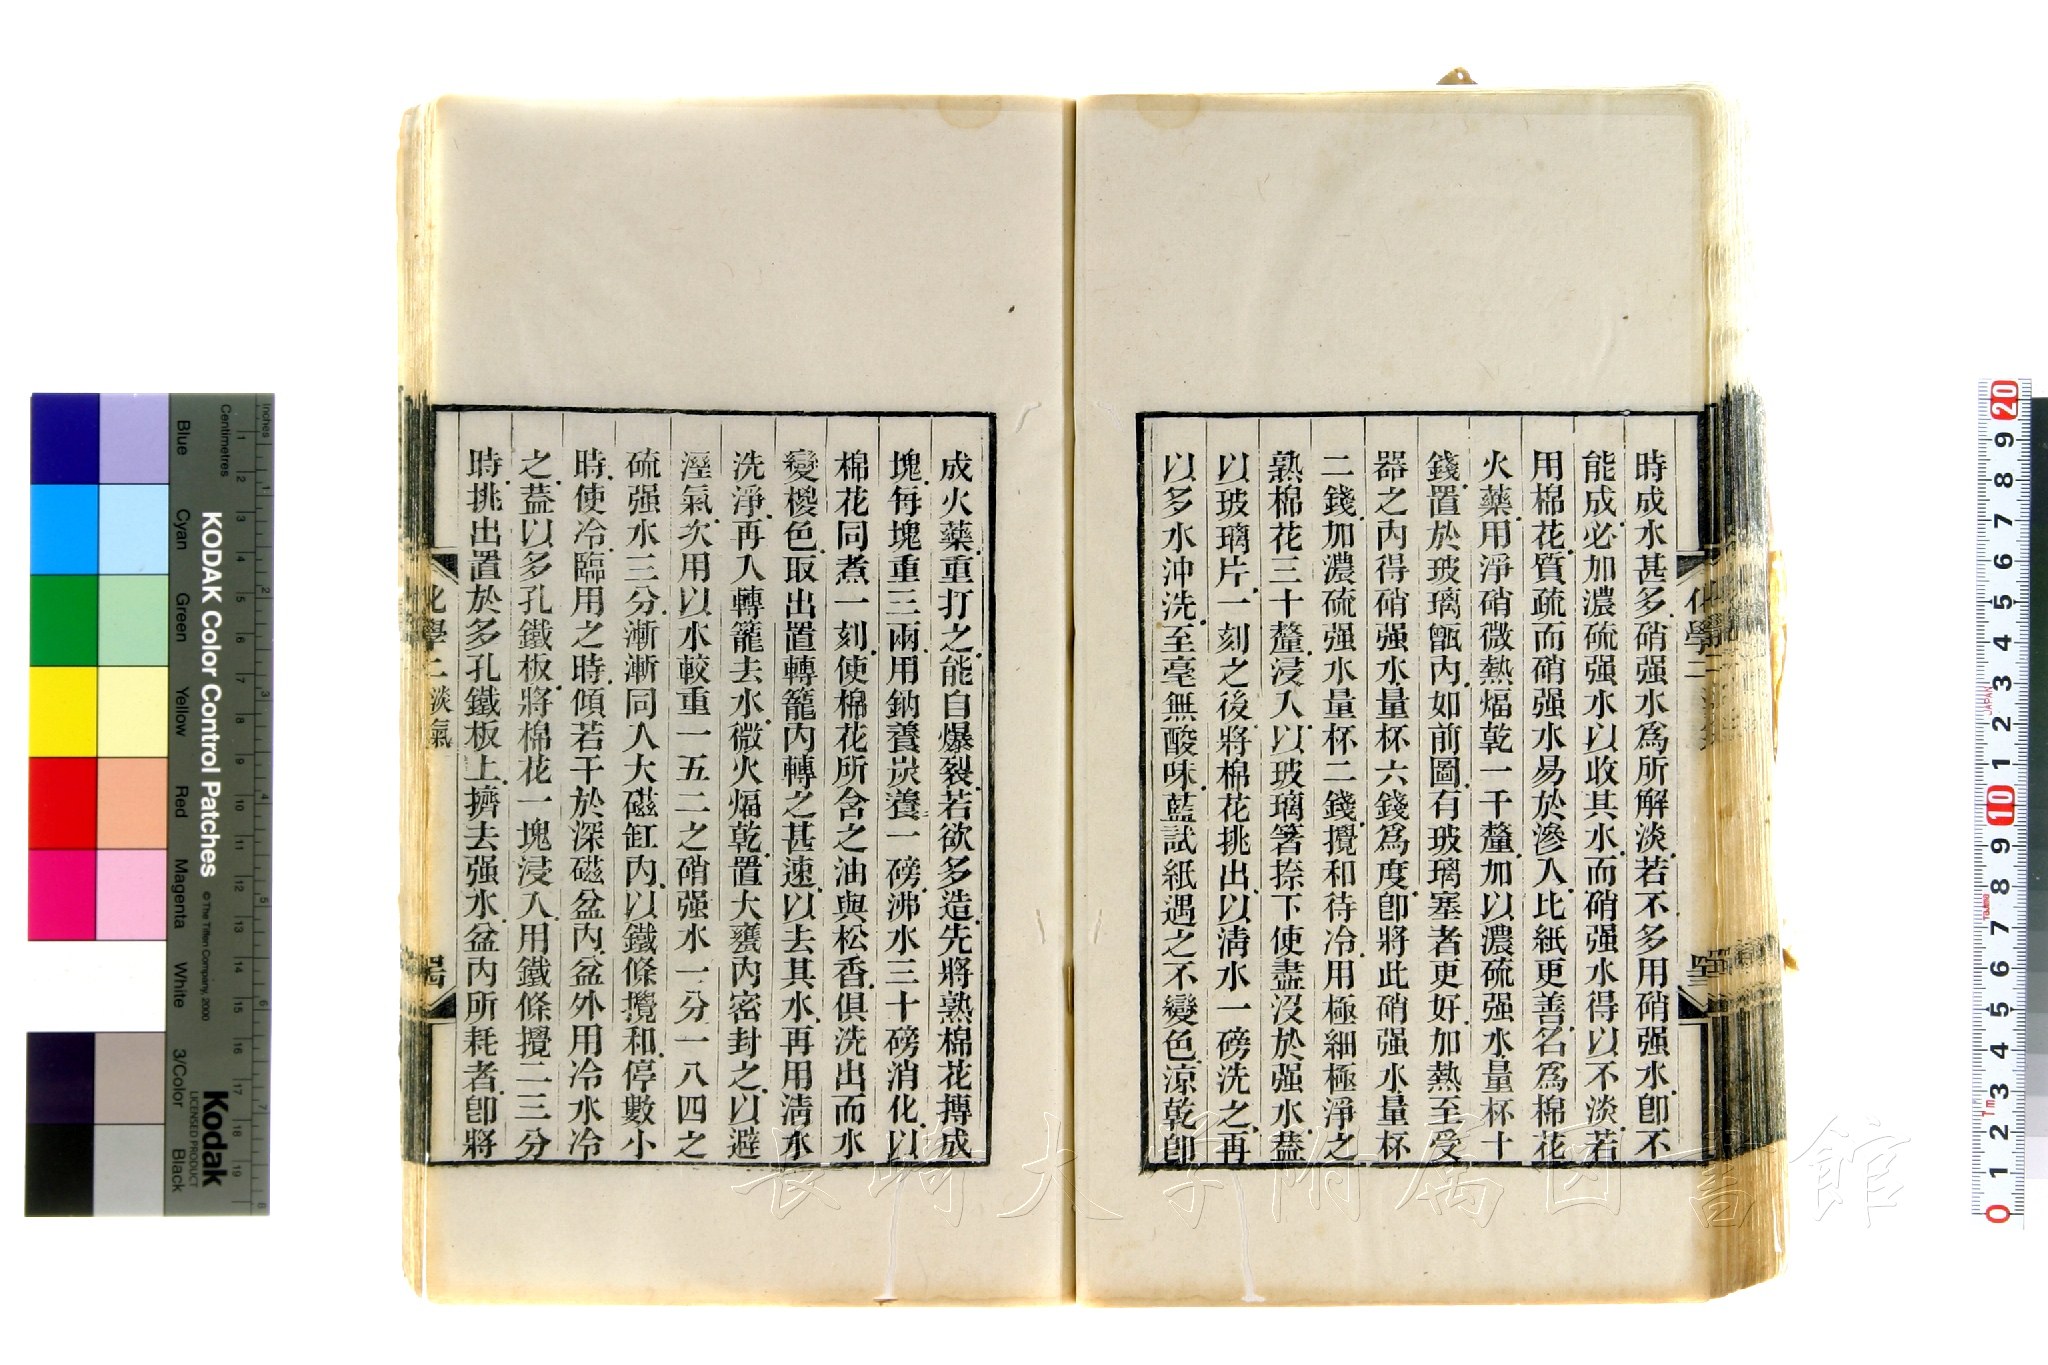 時成水甚多硝强水爲所解淡若不多用硝强水卽不
能成必加濃硫强水以收其水而硝强水得以不淡若
用棉花質疏而硝强水易於滲入比紙更善名爲棉花
火藥用淨硝微熱煏乾一千釐加以濃硫强水量杯十
錢置於玻璃甑內如前圖有玻璃塞者更好加熱至受
器之內得硝强水量杯六錢爲度卽將此硝强水量杯
二錢加濃硫强水量杯二錢攪和待冷用極細極淨之
熟棉花三十釐浸入以玻璃箸捺下使盡沒於强水蓋
以玻璃片一刻之後將棉花挑出以淸水一磅洗之再
以多水沖洗至毫無酸味藍試紙遇之不變色涼乾卽
成火藥重打之能自爆裂若欲多造先將熟棉花摶成
塊每塊重三兩用鈉養炭養一磅沸水三十磅消化以
棉花同煮一刻使棉花所含之油與松香俱洗出而水
變椶色取出置轉籠內轉之甚速以去其水再用淸水
洗淨再入轉籠去水微火煏乾置大甕內密封之以避
溼氣次用以水較重一五二之硝强水一分一八四之
硫强水三分漸漸同入大磁缸內以鐵條攪和停數小
時使冷臨用之時傾若干於深磁盆內盆外用冷水冷
之蓋以多孔鐵板將棉花一塊浸入用鐵條攪二三分
時挑出置於多孔鐵板上擠去强水盆內所耗者卽將
化學二 淡氣
化學二
KODAK Color Control Patches
© The Tiffen Company, 2000
Kodak
LICENSED PRODUCT
Inches
Centimetres
Blue
Cyan
Green
Yellow
Red
Magenta
White
3/Color
Black
長崎大学附属図書館
JAPAN